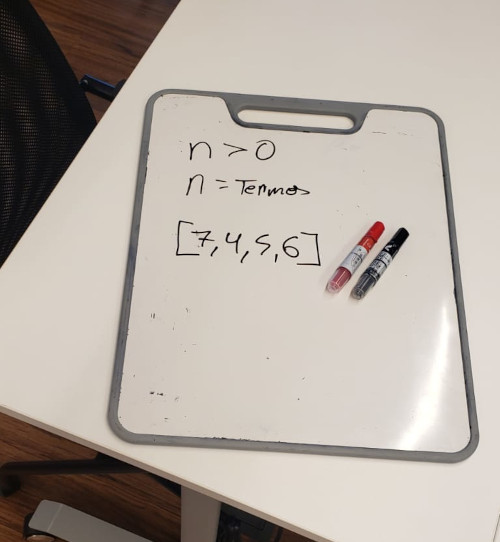 n > 0
n = Termos
[7,4,5,6]